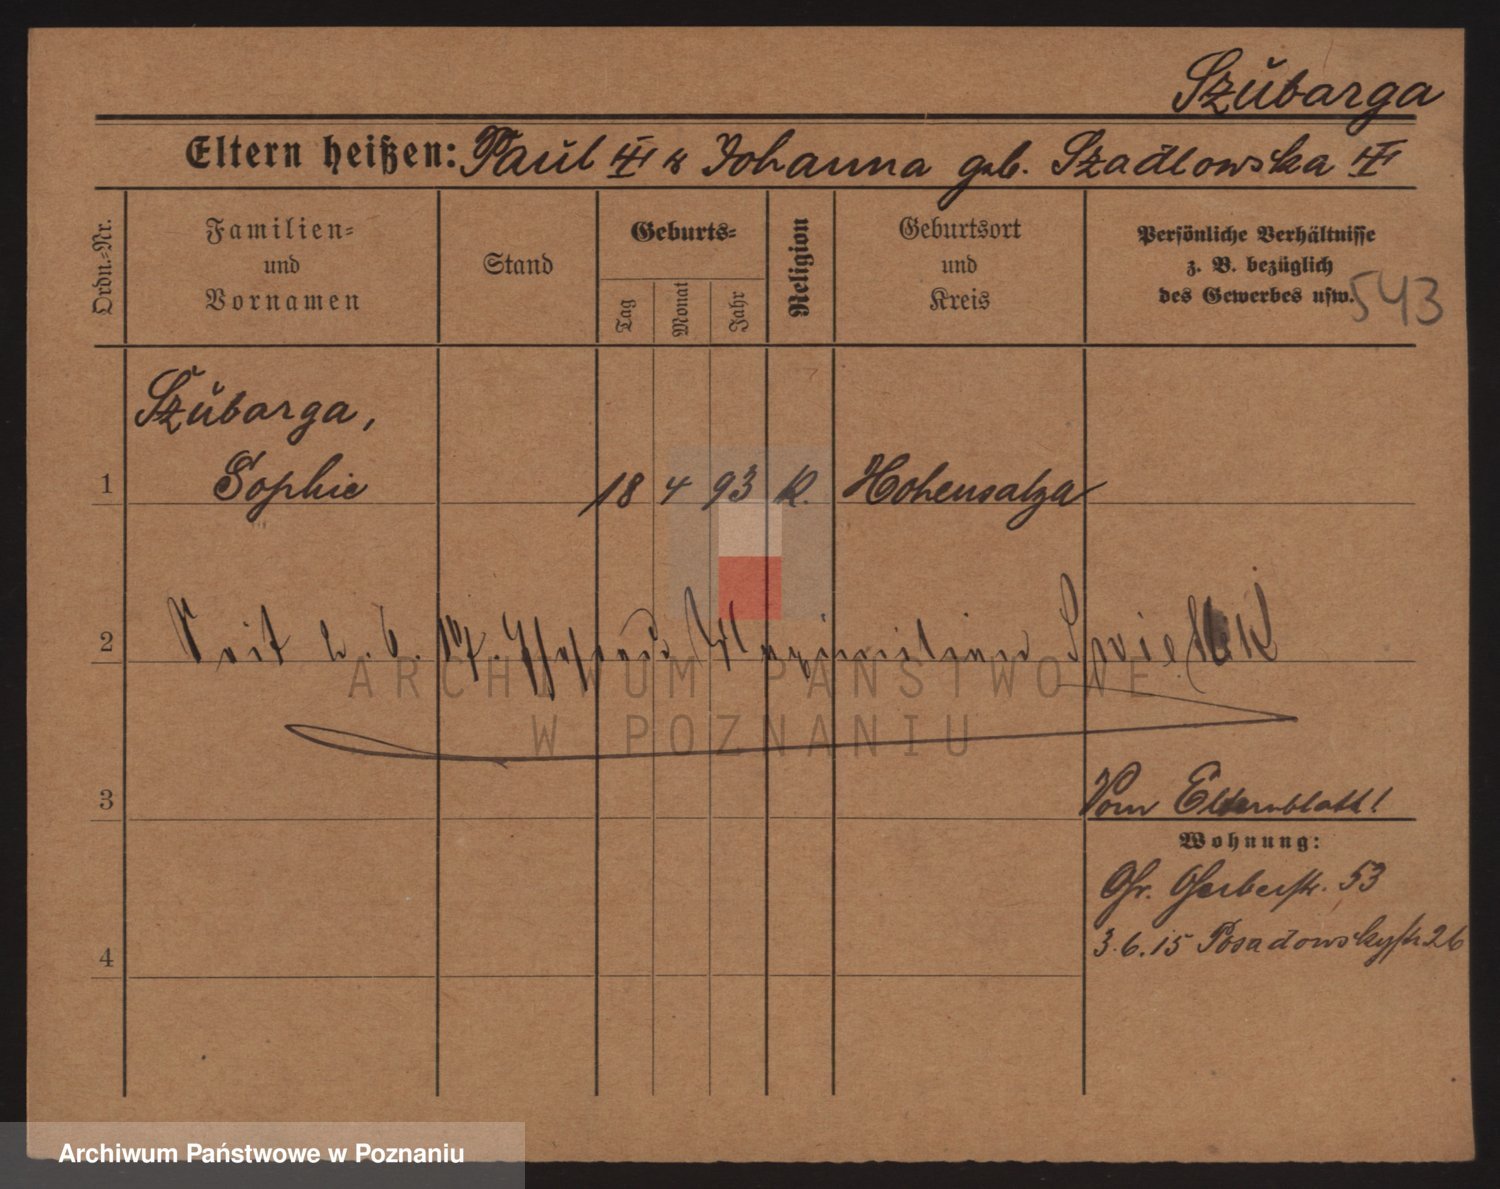 Szubarga
Eltern heißen: Paul ☩ u Johanna geb. Szadlowska ☩
Ordn.-Nr.
Familien-
und
Vornamen
Stand
Geburts-
Tag
Monat
Jahr
Religion
Geburtsort
und
Kreis
Persönliche Verhältnisse
z. B. bezüglich
des Gewerbes usw.
543
Szubarga,
1 Sophie 18 4 93 K. Hohensalza
2 Seit 2. 6. 17. Ehefrau Maximilian
ARCHIWUM PAŃSTWOWE
W POZNANIU
3 Vom Elternblatt!
Wohnung:
Gr. Gerberstr. 53
3.6.15 Posadowskystr 26
4
Archiwum Państwowe w Poznaniu